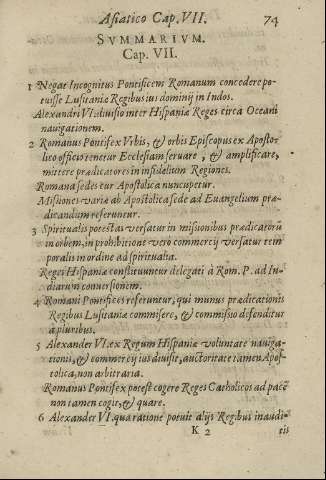 Asiatico Cap. VII. 74
SVMMARIVM.
Cap. VII.
1 Negat Incognitus Pontificem Romanum concedere po-
tuisse Lusitaniæ Regibus ius dominij in Indos.
Alexandri VI. divisio inter Hispaniæ Reges circa Oceani
navigationem.
2 Romanus Pontifex Vrbis, & orbis Episcopus ex Aposto-
lico officio tenetur Ecclesiam servare, & amplificare,
mittere prædicatores in infidelium Regiones.
Romana sedes cur Apostolica nuncupetur.
Missiones variæ ab Apostolica sede ad Euangelium præ-
dicandum referuntur.
3 Spiritualis potestas versatur in missionibus prædicatorũ
in orbem, in prohibitione vero commercij versatur tem
poralis in ordine ad spiritualia.
Reges Hispaniæ constituuntur delegati à Rom. P. ad In-
diarum conversionem.
4 Romani Pontifices referuntur, qui munus prædicationis
Regibus Lusitaniæ commisere, & commissio defenditur
a pluribus.
5 Alexander VI. ex Regum Hispaniæ voluntate naviga-
tionis, & commercij ius divisit, auctoritate tamen Apos-
tolica, non arbitraria.
Romanus Pontifex potest cogere Reges Catholicos ad pacẽ
non tamen cogit, & quare.
6 Alexander VI. qua ratione potuit alijs Regibus inaudi-
K 2 tis